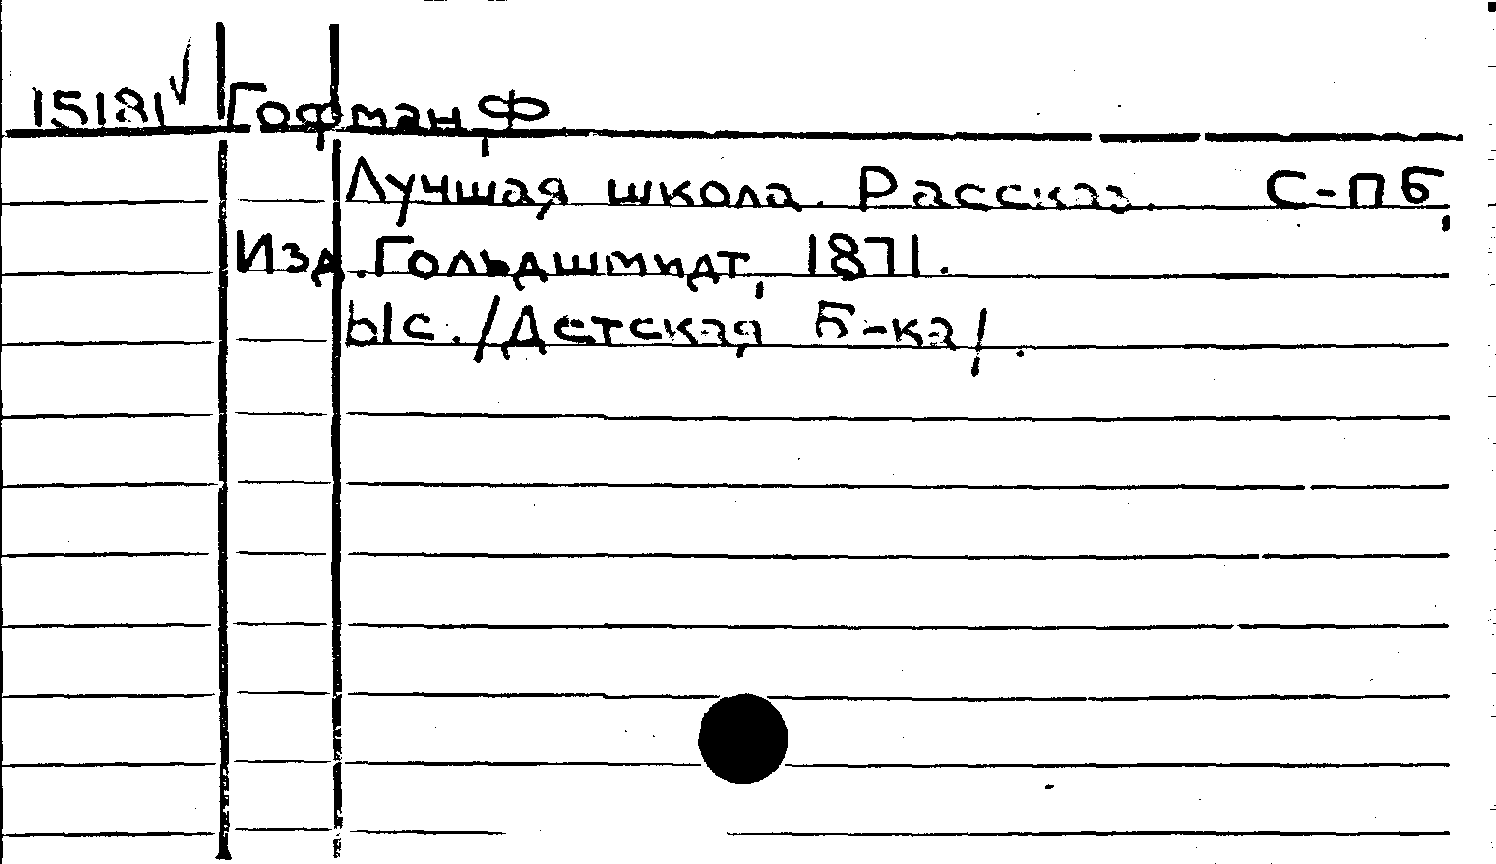 15181 Гофман, Ф
Лучшая школа. Рассказ. С-Пб,
Изд. Гольдшмидт, 1871.
61с. /Детская Б-ка/.